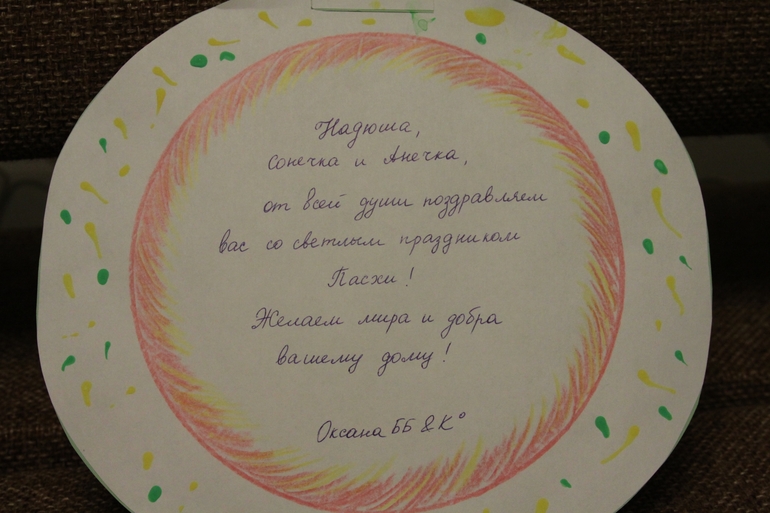 Надюша,
Сонечка и Анечка,
от всей души поздравляем
вас со светлым праздником
Пасхи!
Желаем мира и добра
вашему дому!
Оксана ББ & К°